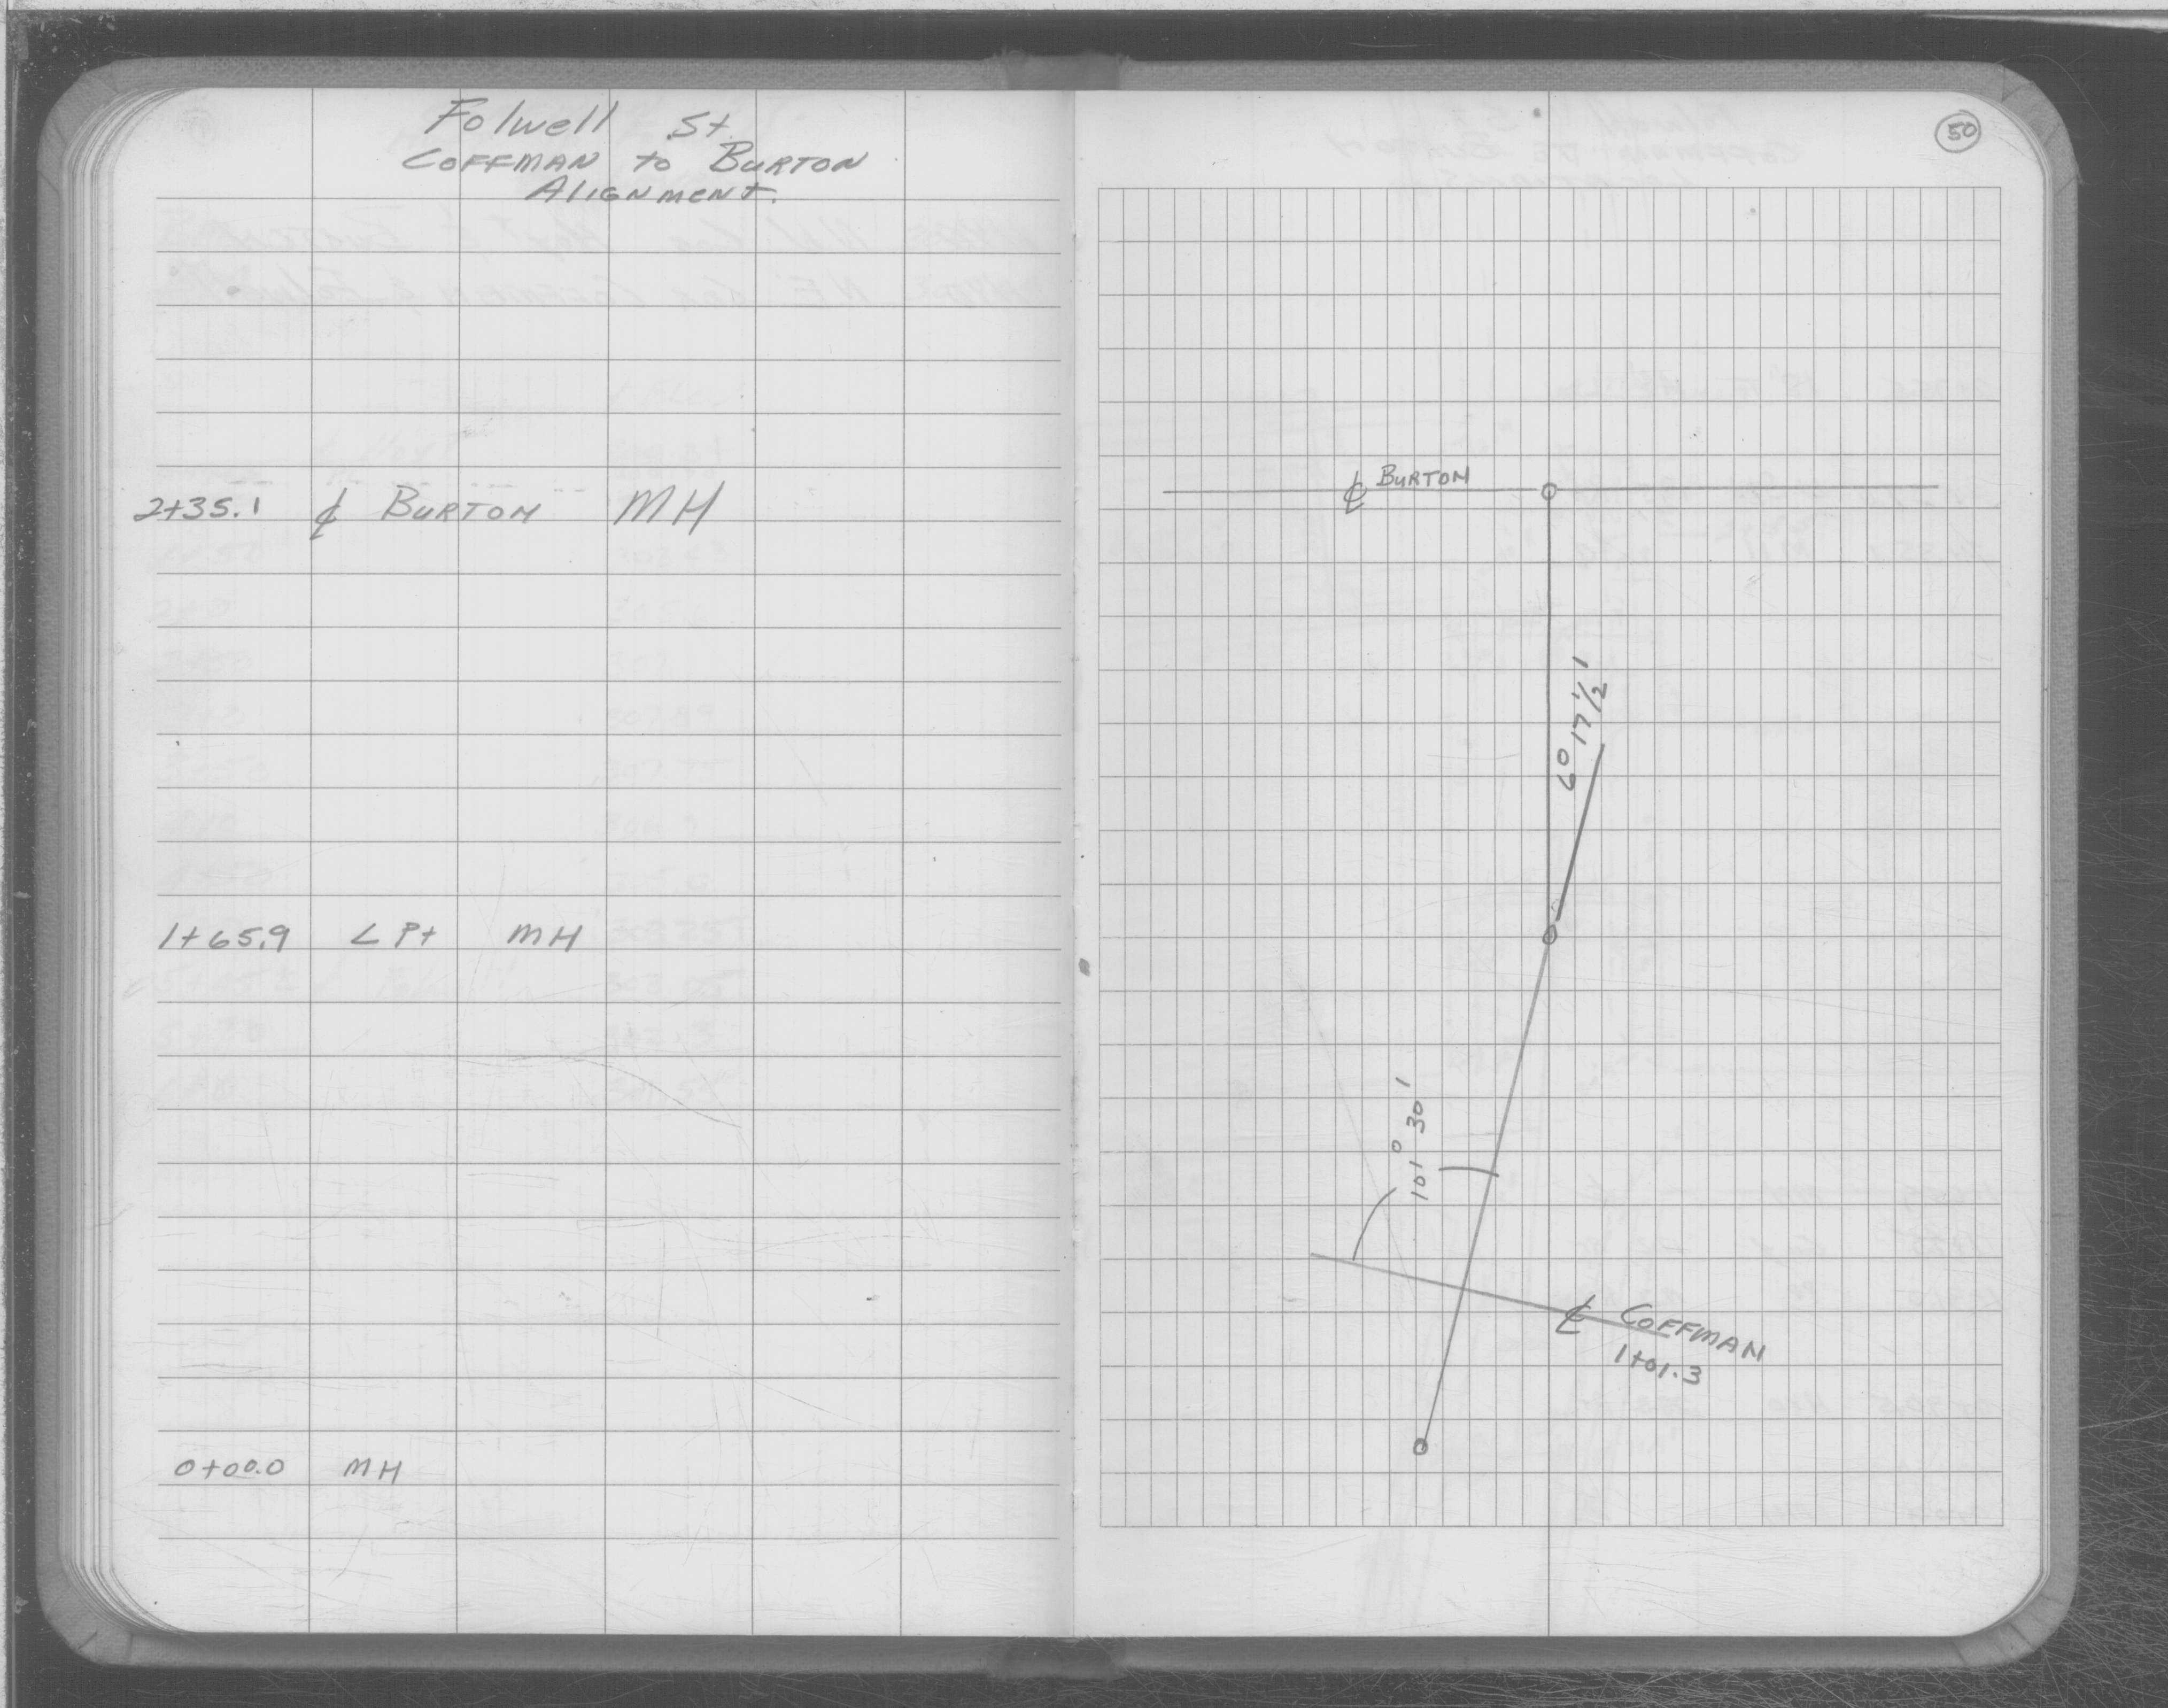 Folwell St.
COFFMAN to BURTON
ALIGNMENT.
2+35.1 ℄ BURTON MH
1+65.9 ∠ Pt MH
0+00.0 MH
50
℄ BURTON
6° 17 1/2'
101° 30'
℄ COFFMAN
1+01.3